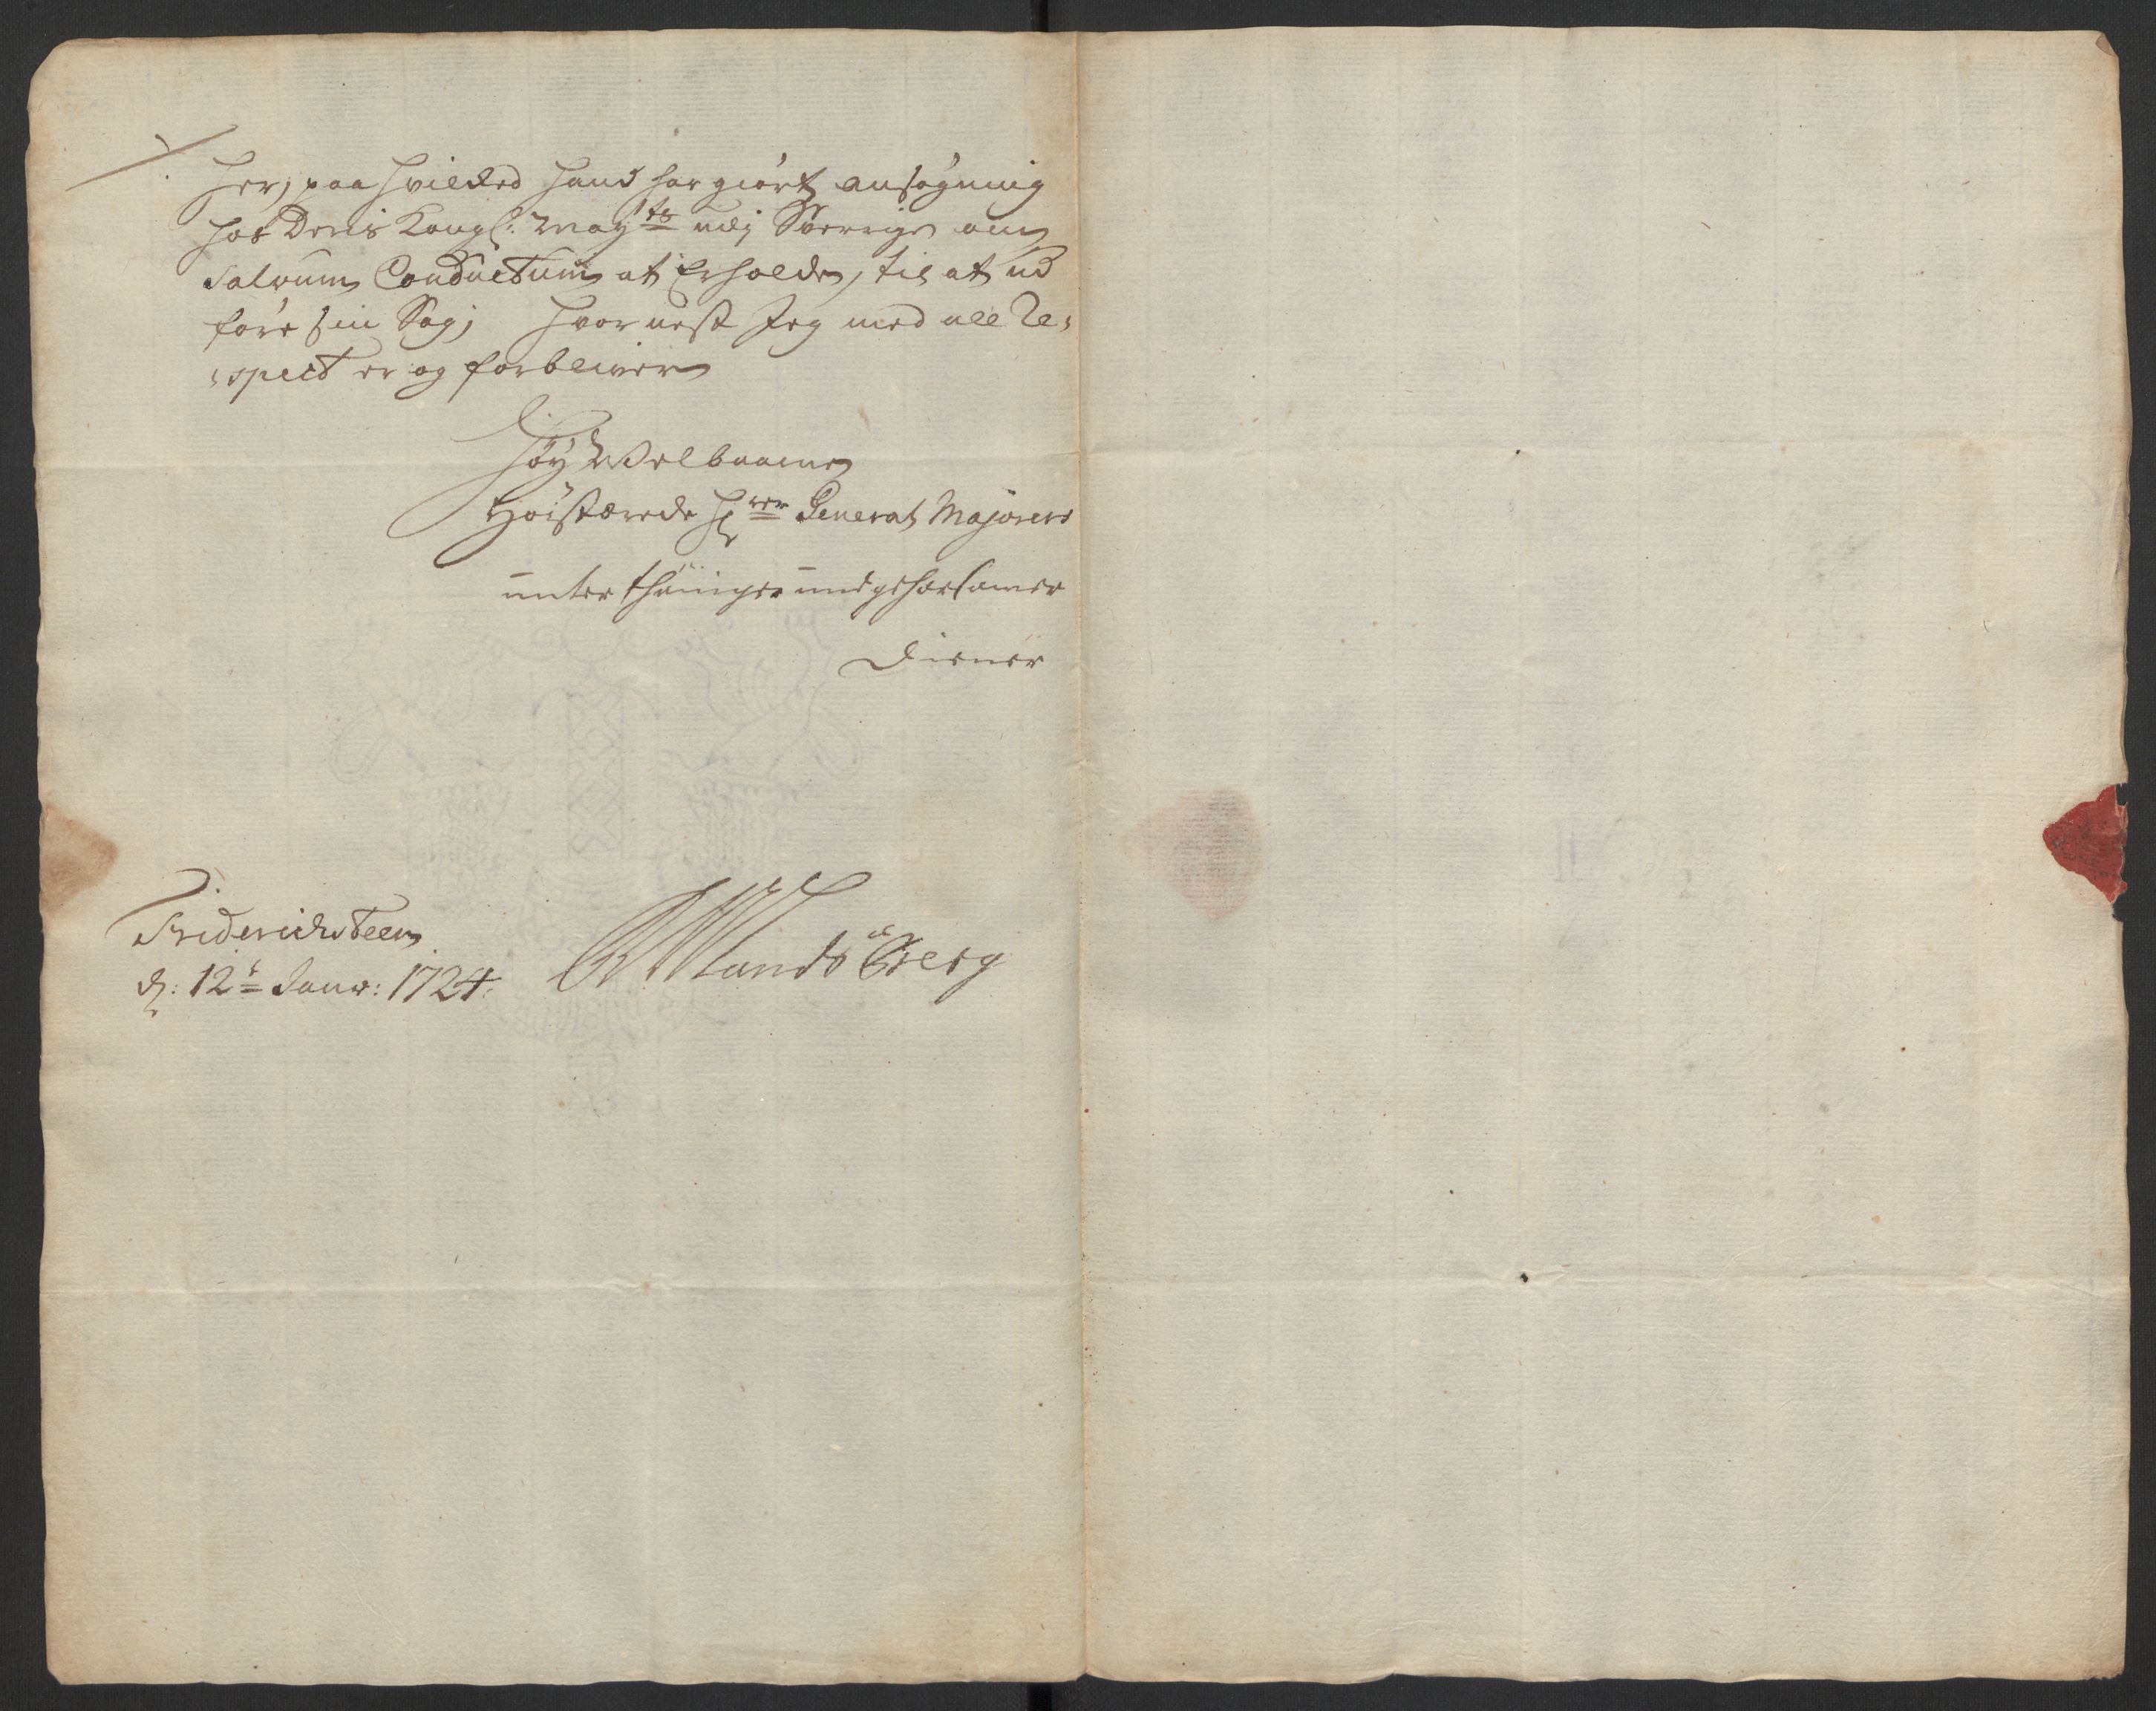 her, paa hvilcked hand har giort ansøgning
hos Deris Kongl: May:ts udj Sverrige om
Salvum Conductum at Erholde, til at ud
føre sin Sag; hvor nest Jeg med all Re,
,spect er og forbliver
Høy Welbaarne
Høistærede Hrr Generat Majorens
unterthäniger und gehorsamer
Diener
Friderichsteen
d: 12t Janv: 1724.
Landsberg